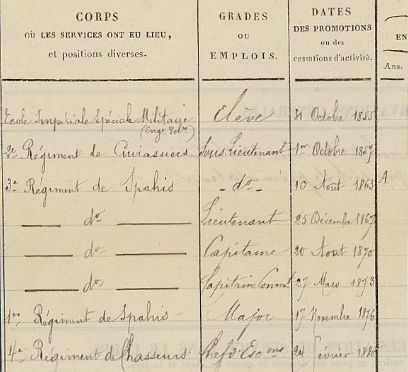 CORPS
OÙ LES SERVICES ONT EU LIEU,
et positions diverses.
GRADES
OU
EMPLOIS.
DATES
DES PROMOTIONS
ou des
cessations d'activité.
EN
Ans.
Ecole Impériale Spéciale Militaire Elève 31 Octobre 1855
2e Régiment de Cuirassiers Sous Lieutenant 1er Octobre
3e Régiment de Spahis - do - 10 Aout 1863 A
— do — Lieutenant 25 Décembre
— do — Capitaine 20 Aout 1870
— do — Capitaine Commt 27 Mars 1873
1er Régiment de Spahis Major 17 Novembre 1876
4e Régiment de Chasseurs Chef d'Escons 24 Février 1880